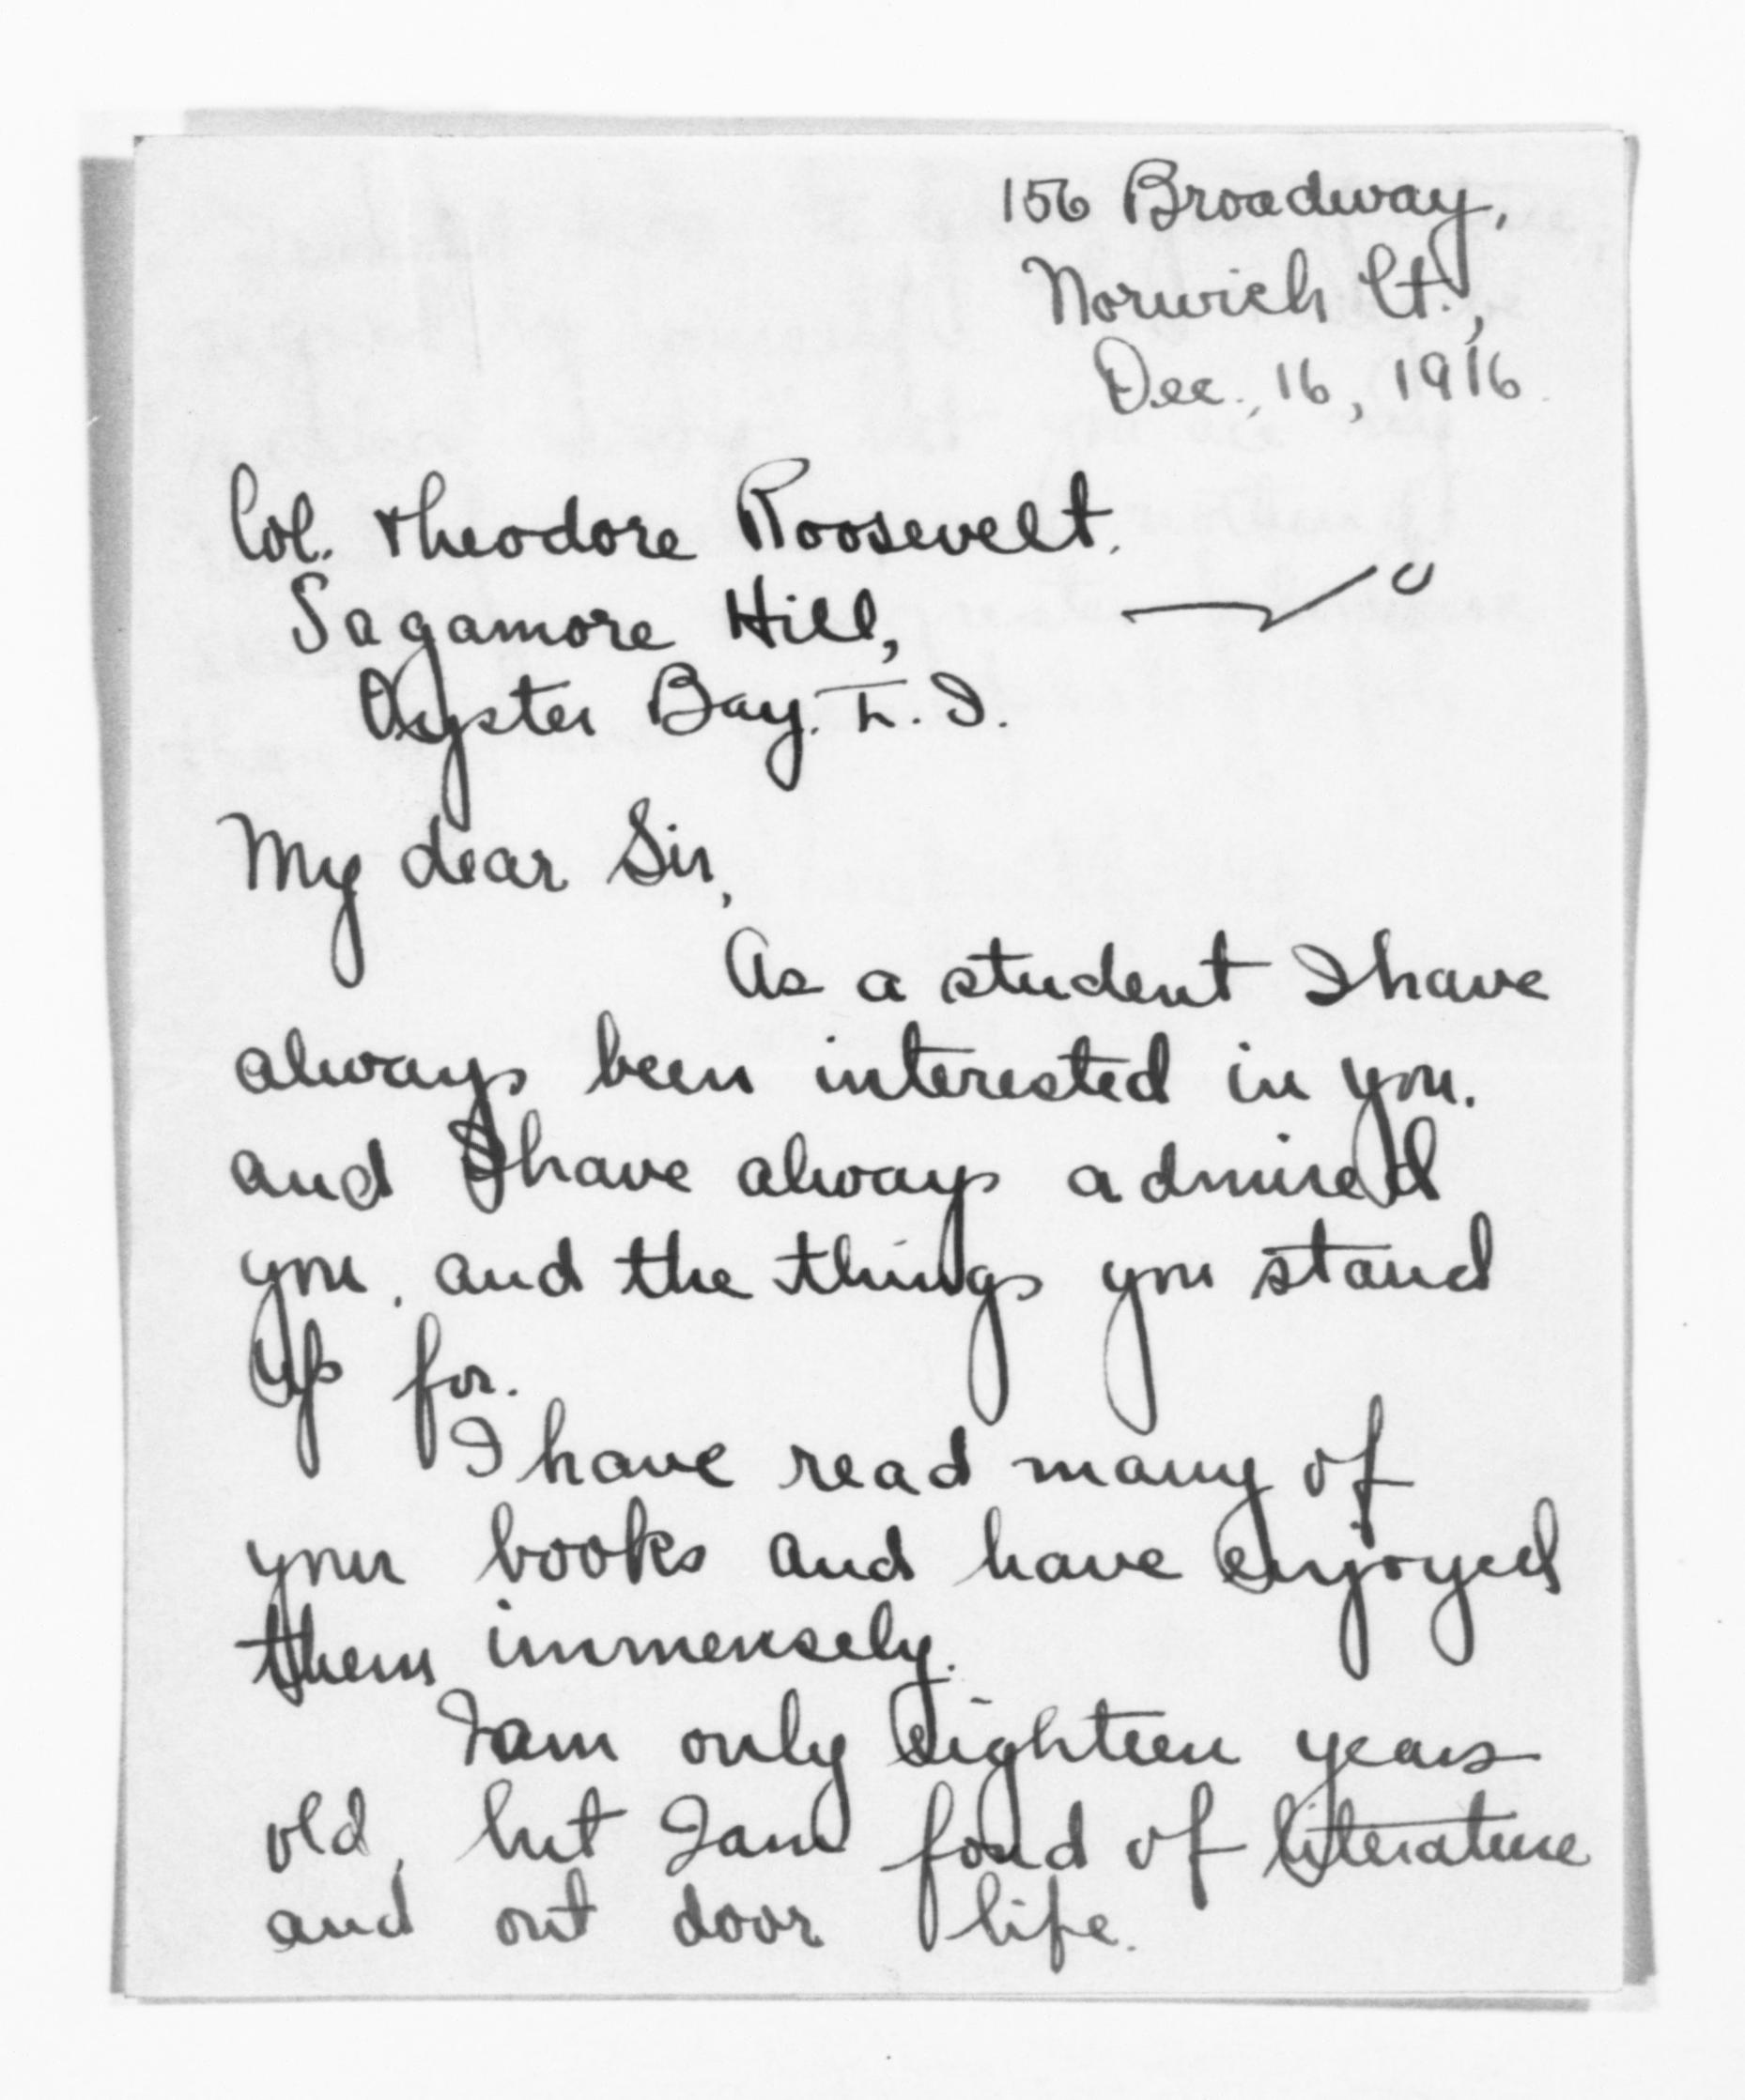 156 Broadway,
Norwich Ct.,
Dec., 16, 1916.
Col. Theodore Roosevelt.
Sagamore Hill,
Oyster Bay. L. I.
My dear Sir,
As a student I have
always been interested in you.
and I have always admired
you, and the things you stand
up for.
I have read many of
your books and have enjoyed
them immensely.
I am only eighteen years
old, but I am fond of literature
and out door life.